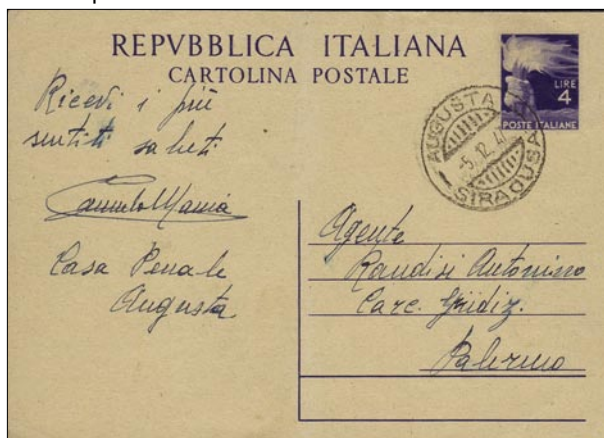 REPVBBLICA ITALIANA
CARTOLINA POSTALE
LIRE
4
POSTE ITALIANE
AUGUSTA
-5.12.4
SIRAGUSA
Ricevi i più
sentiti saluti
Casa Penale
Augusta
Agente
Randisi Antonino
Carc. Giudiz.
Palermo